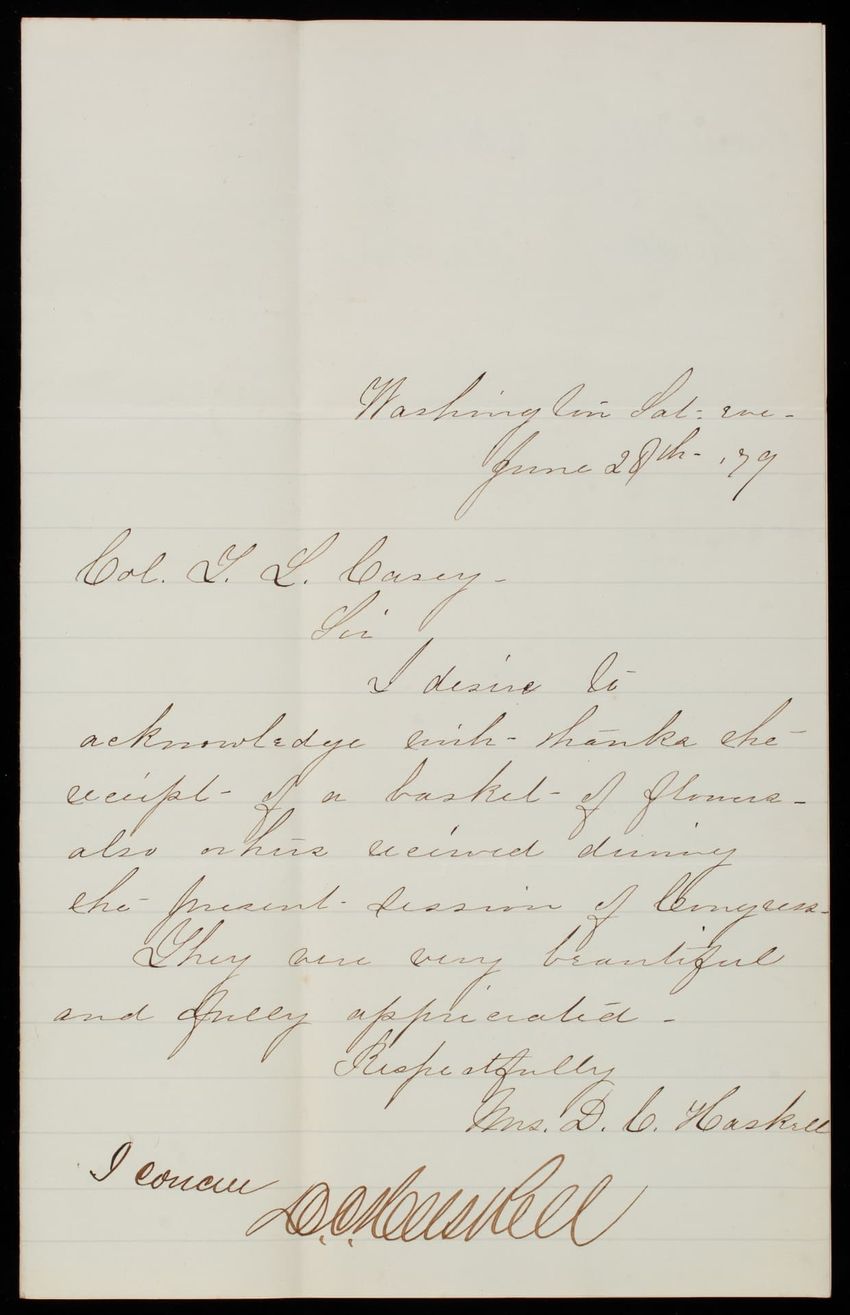 Washington Sat- eve-
June 28th- '79
Col. T. L. Casey-
Sir
I desire to
acknowledge with- thanks the
receipt- of a basket- of flowers-
also others received during
the present- session of Congress-
They were very beautiful
and fully appriciated-
Respectfully
Mrs. D. C. Haskell
I concur
D.C. Haskell